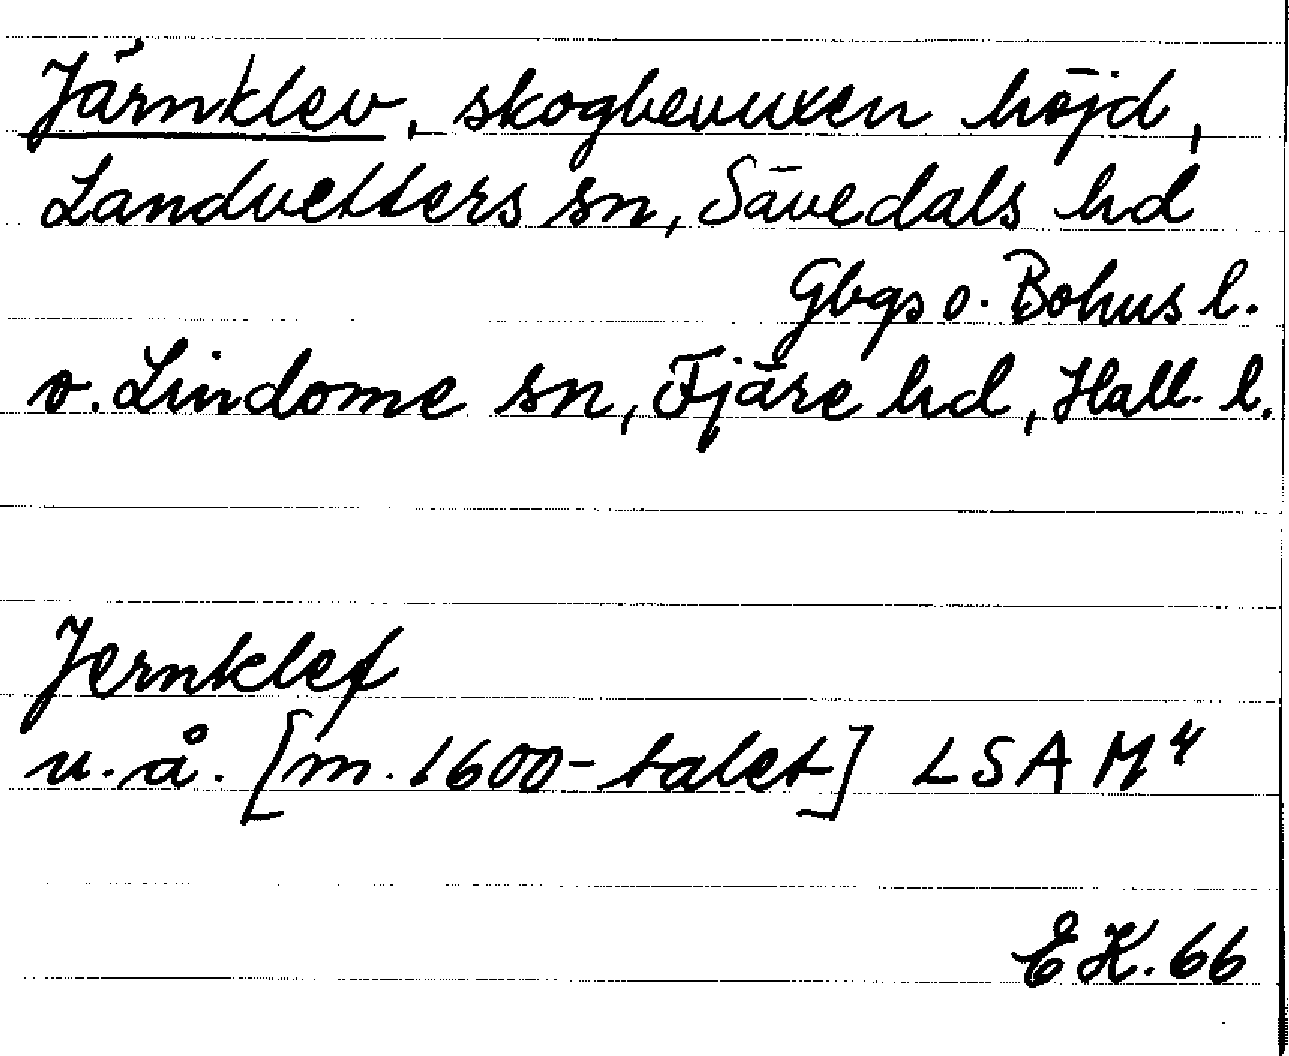 Järnklev, skogbevuxen höjd,
Landvetters sn, Sävedals hd
Gbgs o. Bohus l.
o. Lindome sn, Fjäre hd, Hall. l.
Jernklef
u. å. [m. 1600-talet] LSA M⁴
EK. 66